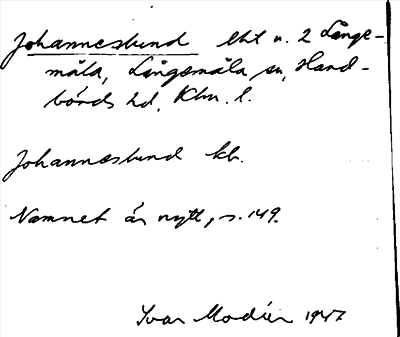 Johanneslund lht u. 2 Långe-
måla, Långemåla sn, Hand-
börds hd, Klm. l.
Johanneslund kb.
Namnet är nytt, s. 149.
Ivar Modéer 1947